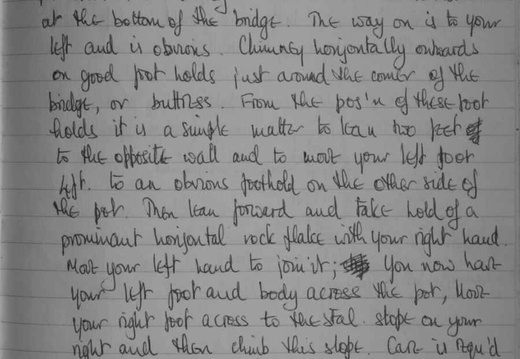 at the bottom of the bridge. The way on is to your
left and is obvious. Chimney horizontally onwards
on good foot holds just around the corner of the
bridge, or buttress. From the pos'n of these foot
holds it is a simple matter to lean two feet
to the opposite wall and to move your left foot
left. to an obvious foothold on the other side of
the pot. Then lean forward and take hold of a
prominant horizontal rock flake with your right hand.
Move your left hand to join it; You now have
your left foot and body across the pot, move
your right foot across to the stal. slope on your
right and then climb this slope. Care is requ'd